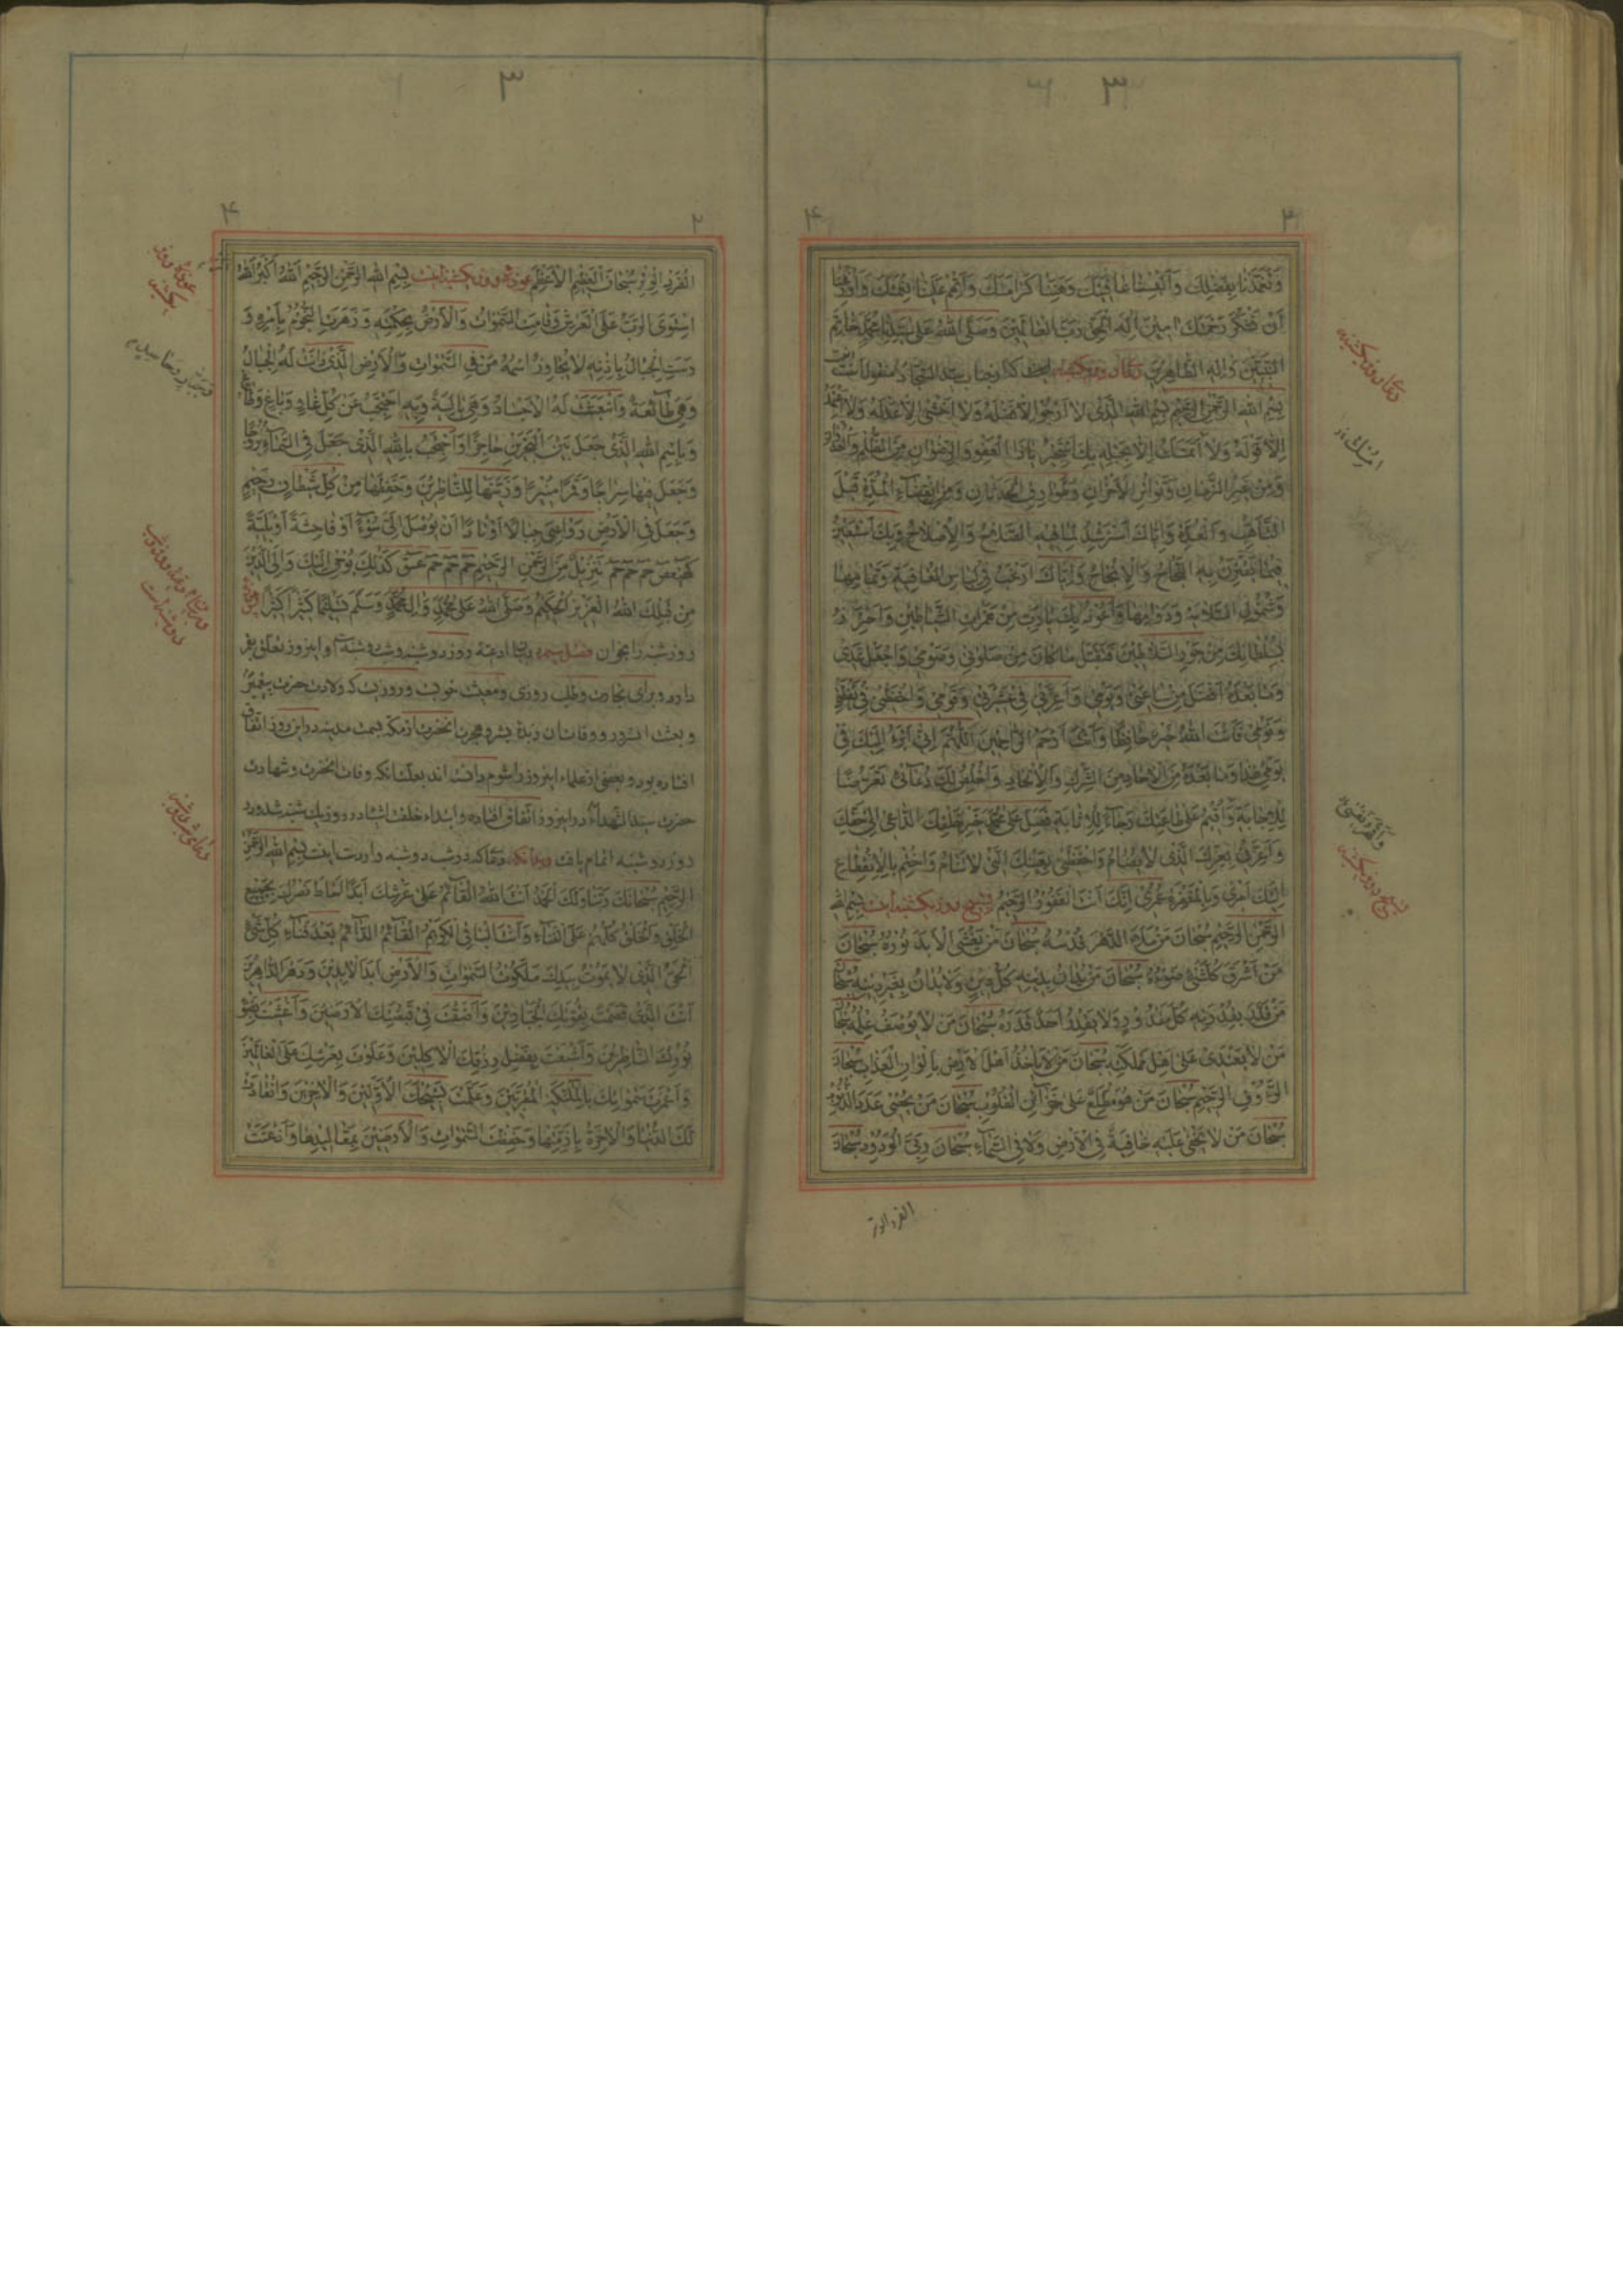 ٣
٣ ۴
وَتَغَمَّدَنَا بِفَضْلِكَ وَهَبْنَا كَرَامَتَكَ وَأَتْمِمْ عَلَيْنَا نِعْمَتَكَ وَأَوْزِعْنَا
أَنْ نَشْكُرَ رَحْمَتَكَ آمِينَ إِلٰهَ الْحَقِّ رَبَّ الْعَالَمِينَ وَصَلَّى اللهُ عَلَى سَيِّدِنَا مُحَمَّدٍ خَاتَمِ
النَّبِيِّينَ وَآلِهِ الطَّاهِرِينَ دعای روز یکشنبه
بِسْمِ اللهِ الرَّحْمٰنِ الرَّحِيمِ بِسْمِ اللهِ الَّذِي لَا أَرْجُو إِلَّا فَضْلَهُ وَلَا أَخْشَى إِلَّا عَدْلَهُ وَلَا أَعْتَمِدُ
إِلَّا قَوْلَهُ وَلَا أُمْسِكُ إِلَّا بِحَبْلِهِ بِكَ أَسْتَجِيرُ يَا ذَا الْعَفْوِ وَالرِّضْوَانِ مِنَ الظُّلْمِ وَالْعُدْوَانِ
وَمِنْ غِيَرِ الزَّمَانِ وَتَوَاتُرِ الْأَحْزَانِ وَطَوَارِقِ الْحَدَثَانِ وَمِنِ انْقِضَاءِ الْمُدَّةِ قَبْلَ
التَّأَهُّبِ وَالْعُدَّةِ وَإِيَّاكَ أَسْتَرْشِدُ لِمَا فِيهِ الصَّلَاحُ وَالْإِصْلَاحُ وَبِكَ أَسْتَعِينُ
فِيمَا يَقْتَرِنُ بِهِ النَّجَاحُ وَالْإِنْجَاحُ وَإِيَّاكَ أَرْغَبُ فِي لِبَاسِ الْعَافِيَةِ وَتَمَامِهَا
وَشُمُولِ السَّلَامَةِ وَدَوَامِهَا وَأَعُوذُ بِكَ يَا رَبِّ مِنْ هَمَزَاتِ الشَّيَاطِينِ وَأَحْتَرِزُ
بِسُلْطَانِكَ مِنْ جَوْرِ السَّلَاطِينِ فَتَقَبَّلْ مَا كَانَ مِنْ صَلَوتِي وَصَوْمِي وَاجْعَلْ غَدِي
وَمَا بَعْدَهُ أَفْضَلَ مِنْ سَاعَتِي وَيَوْمِي وَأَعِزَّنِي فِي عَشِيرَتِي وَقَوْمِي وَاحْفَظْنِي فِي يَقْظَتِي
وَنَوْمِي فَأَنْتَ اللهُ خَيْرٌ حَافِظًا وَأَنْتَ أَرْحَمُ الرَّاحِمِينَ اللّٰهُمَّ إِنِّي أَبْرَءُ إِلَيْكَ فِي
يَوْمِي هٰذَا وَمَا بَعْدَهُ مِنَ الْآحَادِ مِنَ الشِّرْكِ وَالْإِلْحَادِ وَأُخْلِصُ لَكَ دُعَائِي تَعَرُّضًا
لِلْإِجَابَةِ وَأُقِيمُ عَلَى طَاعَتِكَ رَجَاءً لِلْإِثَابَةِ فَصَلِّ عَلَى مُحَمَّدٍ خَيْرِ خَلْقِكَ الدَّاعِي إِلَى حَقِّكَ
وَأَعِزَّنِي بِعِزِّكَ الَّذِي لَا يُضَامُ وَاحْفَظْنِي بِعَيْنِكَ الَّتِي لَا تَنَامُ وَاخْتِمْ بِالْإِنْقِطَاعِ
إِلَيْكَ أَمْرِي وَبِالْمَغْفِرَةِ عُمْرِي إِنَّكَ أَنْتَ الْغَفُورُ الرَّحِيمُ تسبیح روز یکشنبه اینست بِسْمِ اللهِ
الرَّحْمٰنِ الرَّحِيمِ سُبْحَانَ مَنْ مَلَأَ الدَّهْرَ قُدْسُهُ سُبْحَانَ مَنْ يَغْشَى الْأَبَدَ نُورُهُ سُبْحَانَ
مَنْ أَشْرَقَ كُلَّ شَيْءٍ ضَوْءُهُ سُبْحَانَ مَنْ يُدَانُ بِدِينِهِ كُلُّ دِينٍ وَلَا يُدَانُ بِغَيْرِ دِينِهِ سُبْحَانَ
مَنْ قَدَّرَ بِقُدْرَتِهِ كُلَّ قَدَرٍ وَلَا يَقْدِرُ أَحَدٌ قَدْرَهُ سُبْحَانَ مَنْ لَا يُوصَفُ عِلْمُهُ سُبْحَانَ
مَنْ لَا يَعْتَدِي عَلَى أَهْلِ مَمْلَكَتِهِ سُبْحَانَ مَنْ لَا يَأْخُذُ أَهْلَ الْأَرْضِ بِأَلْوَانِ الْعَذَابِ سُبْحَانَ
الرَّؤُوفِ الرَّحِيمِ سُبْحَانَ مَنْ هُوَ مُطَّلِعٌ عَلَى خَزَائِنِ الْقُلُوبِ سُبْحَانَ مَنْ يُحْصِي عَدَدَ الذُّنُوبِ
سُبْحَانَ مَنْ لَا تَخْفَى عَلَيْهِ خَافِيَةٌ فِي الْأَرْضِ وَلَا فِي السَّمَاءِ سُبْحَانَ رَبِّيَ الْوَدُودِ سُبْحَانَ
الفرد الوتر
دعای روز یکشنبه
تسبیح روز یکشنبه
٣
٢ ۴
الْفَرْدِ الْوِتْرِ سُبْحَانَ الْعَظِيمِ الْأَعْظَمِ عوذهٔ روز یکشنبه اینست بِسْمِ اللهِ الرَّحْمٰنِ الرَّحِيمِ اللهُ أَكْبَرُ اللهُ
اسْتَوَى الرَّبُّ عَلَى الْعَرْشِ وَقَامَتِ السَّمٰوَاتُ وَالْأَرْضُ بِحِكْمَتِهِ وَزَهَرَتِ النُّجُومُ بِأَمْرِهِ وَ
رَسَتِ الْجِبَالُ بِإِذْنِهِ لَا يُجَاوِزُ اسْمَهُ مَنْ فِي السَّمٰوَاتِ وَالْأَرْضِ الَّذِي دَانَتْ لَهُ الْجِبَالُ
وَهِيَ طَائِعَةٌ وَانْبَعَثَتْ لَهُ الْأَجْسَادُ وَهِيَ بَالِيَةٌ وَبِهِ أَحْتَجِبُ عَنْ كُلِّ غَادٍ وَبَاغٍ
وَبِاسْمِ اللهِ الَّذِي جَعَلَ بَيْنَ الْبَحْرَيْنِ حَاجِزًا وَأَحْتَجِبُ بِاللهِ الَّذِي جَعَلَ فِي السَّمَاءِ بُرُوجًا
وَجَعَلَ فِيهَا سِرَاجًا وَقَمَرًا مُنِيرًا وَزَيَّنَهَا لِلنَّاظِرِينَ وَحَفِظَهَا مِنْ كُلِّ شَيْطَانٍ رَجِيمٍ
وَجَعَلَ فِي الْأَرْضِ رَوَاسِيَ جِبَالًا أَوْتَادًا أَنْ يُوصَلَ إِلَيَّ سُوءٌ أَوْ فَاحِشَةٌ أَوْ بَلِيَّةٌ
كهيعص حم حم حم تَنْزِيلٌ مِنَ الرَّحْمٰنِ الرَّحِيمِ حم حم حم عسق كَذٰلِكَ يُوحِي إِلَيْكَ وَإِلَى الَّذِينَ
مِنْ قَبْلِكَ اللهُ الْعَزِيزُ الْحَكِيمُ وَصَلَّى اللهُ عَلَى مُحَمَّدٍ وَآلِ مُحَمَّدٍ وَسَلَّمَ تَسْلِيمًا كَثِيرًا كَثِيرًا
روز شنبه را بخوان فصل سیم در ادعیهٔ روز دوشنبه و شب دوشنبه و این روز تعلق
دارد و برای تجارت و طلب روزی و معیشت خوبست و روزیست که ولادت حضرت پیغمبر
و بعثت آنسرور و وفات آن زبدهٔ بشر و هجرت آنحضرت از مکه بسمت مدینه در این روز اتفاق
افتاده بود و بعضی از علماء این روز را شوم دانسته‌اند بعلت آنکه وفات آنحضرت و شهادت
حضرت سید الشهداء در این روز اتفاق افتاده و ابتداء خلقت اشیاء در روز یکشنبه شد و در
روز دوشنبه اتمام یافت بدانکه دعائی که در شب دوشنبه وارد است اینست بِسْمِ اللهِ الرَّحْمٰنِ
الرَّحِيمِ سُبْحَانَكَ رَبَّنَا وَلَكَ الْحَمْدُ أَنْتَ اللهُ الْقَائِمُ عَلَى عَرْشِكَ أَبَدًا أَحَاطَ بَصَرُكَ بِجَمِيعِ
الْخَلْقِ وَالْخَلْقُ كُلُّهُمْ عَلَى الْفَنَاءِ وَأَنْتَ الْبَاقِي الْكَرِيمُ الْقَائِمُ الدَّائِمُ بَعْدَ فَنَاءِ كُلِّ شَيْءٍ
الْحَيُّ الَّذِي لَا يَمُوتُ بِيَدِكَ مَلَكُوتُ السَّمٰوَاتِ وَالْأَرْضِ أَبَدَ الْآبِدِينَ وَدَهْرَ الدَّاهِرِينَ
أَنْتَ الَّذِي قَصَمْتَ بِقُوَّتِكَ الْجَبَّارِينَ وَأَضَفْتَ فِي قَبْضَتِكَ الْأَرَضِينَ وَأَغْشَيْتَ بِضَوْءِ
نُورِكَ النَّاظِرِينَ وَأَشْبَعْتَ بِفَضْلِ رِزْقِكَ الْآكِلِينَ وَعَلَوْتَ بِعَرْشِكَ عَلَى الْعَالَمِينَ
وَأَعْمَرْتَ سَمٰوَاتِكَ بِالْمَلَائِكَةِ الْمُقَرَّبِينَ وَعَلَّمْتَ تَسْبِيحَكَ الْأَوَّلِينَ وَالْآخِرِينَ وَانْقَادَتْ
لَكَ الدُّنْيَا وَالْآخِرَةُ بِأَزِمَّتِهَا وَحَفِظْتَ السَّمٰوَاتِ وَالْأَرَضِينَ بِمَقَالِيدِهَا وَأَذْعَنَتْ
عوذهٔ روز یکشنبه
دعای شب دوشنبه